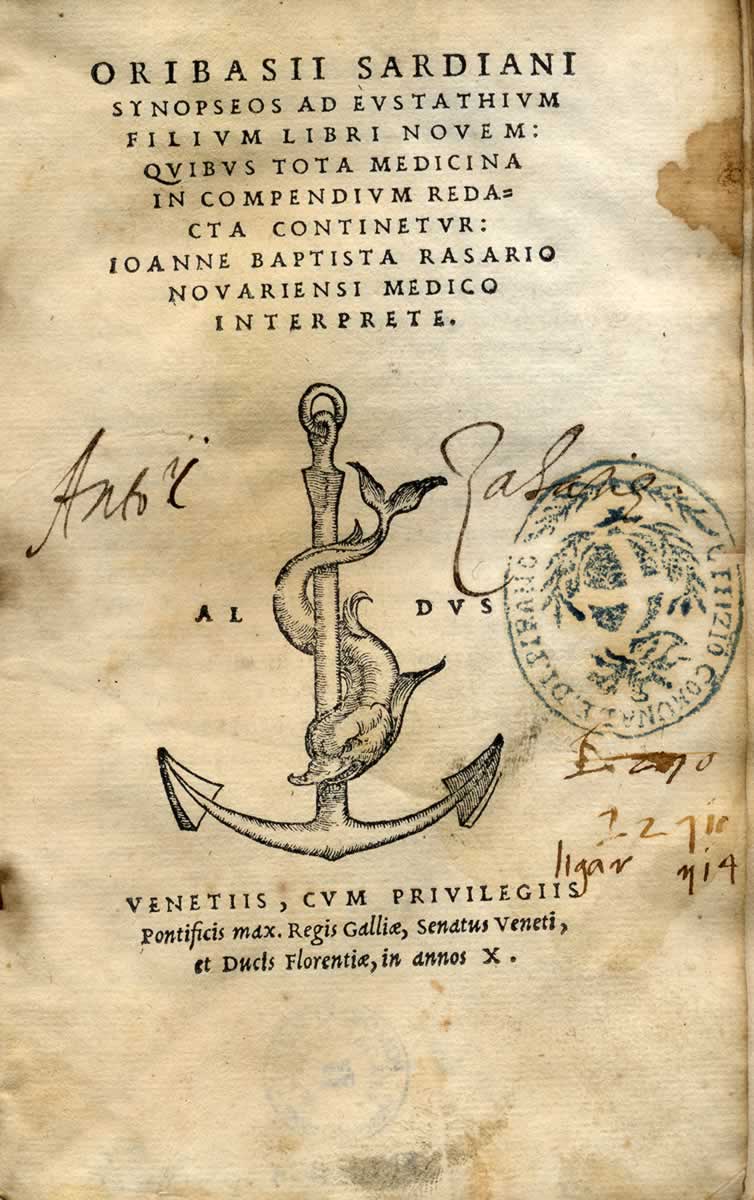 ORIBASII SARDIANI
SYNOPSEOS AD EVSTATHIVM
FILIVM LIBRI NOVEM:
QVIBVS TOTA MEDICINA
IN COMPENDIVM REDA=
CTA CONTINETVR:
IOANNE BAPTISTA RASARIO
NOVARIENSI MEDICO
INTERPRETE.
AL DVS
DI PIRANO
ligar
VENETIIS, CVM PRIVILEGIIS
Pontificis max. Regis Galliæ, Senatus Veneti,
et Ducis Florentiæ, in annos X.